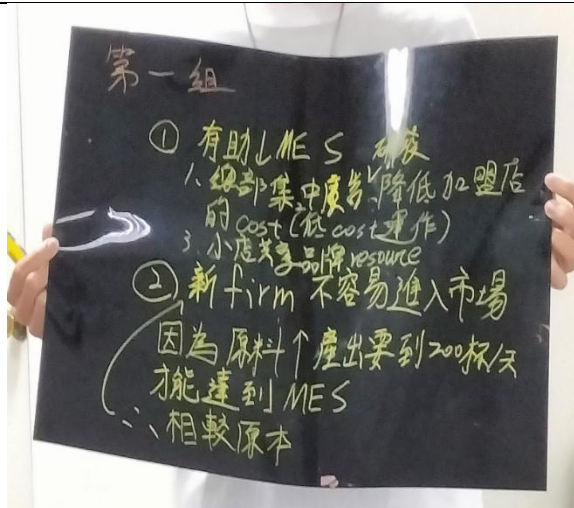 第一組
① 有助↓MES 研發
1、總部集中廣告、降低加盟店
的 cost (低 cost 運作)
3、小店共享品牌 resource
② 新 firm 不容易進入市場
因為原料↑產出要到200杯/天
才能達到MES
∴相較原本